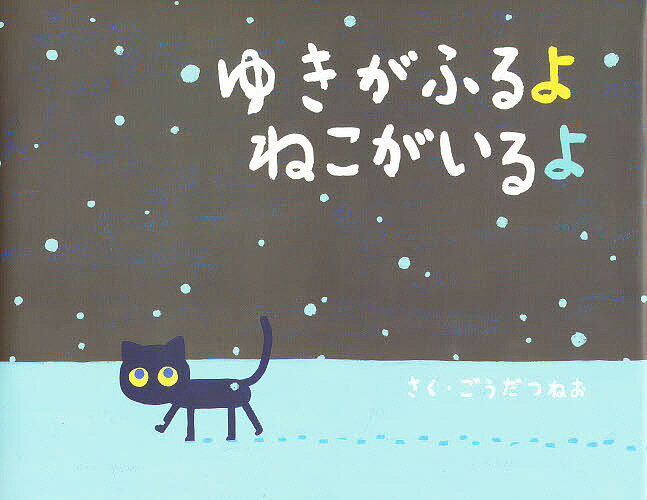 ゆきがふるよ
ねこがいるよ
さく・ごうだつねお